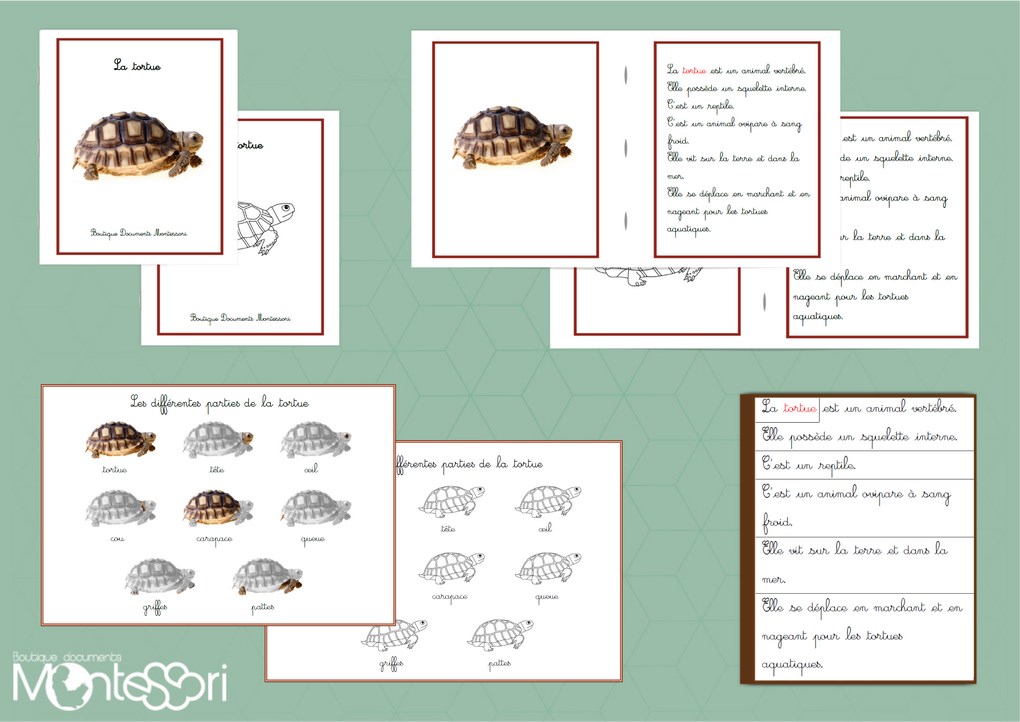 La tortue
Boutique Documents Montessori
tortue
Boutique Documents Montessori
La tortue est un animal vertébré.
Elle possède un squelette interne.
C'est un reptile.
C'est un animal ovipare à sang
froid.
Elle vit sur la terre et dans la
mer.
Elle se déplace en marchant et en
nageant pour les tortues
aquatiques.
est un animal vertébré.
de un squelette interne.
reptile.
animal ovipare à sang
la terre et dans la
Elle se déplace en marchant et en
nageant pour les tortues
aquatiques.
Les différentes parties de la tortue
tortue tête œil
cou carapace queue
griffes pattes
parties de la tortue
tête œil
carapace queue
griffes pattes
La tortue est un animal vertébré.
Elle possède un squelette interne.
C'est un reptile.
C'est un animal ovipare à sang
froid.
Elle vit sur la terre et dans la
mer.
Elle se déplace en marchant et en
nageant pour les tortues
aquatiques.
Boutique documents
Montessori